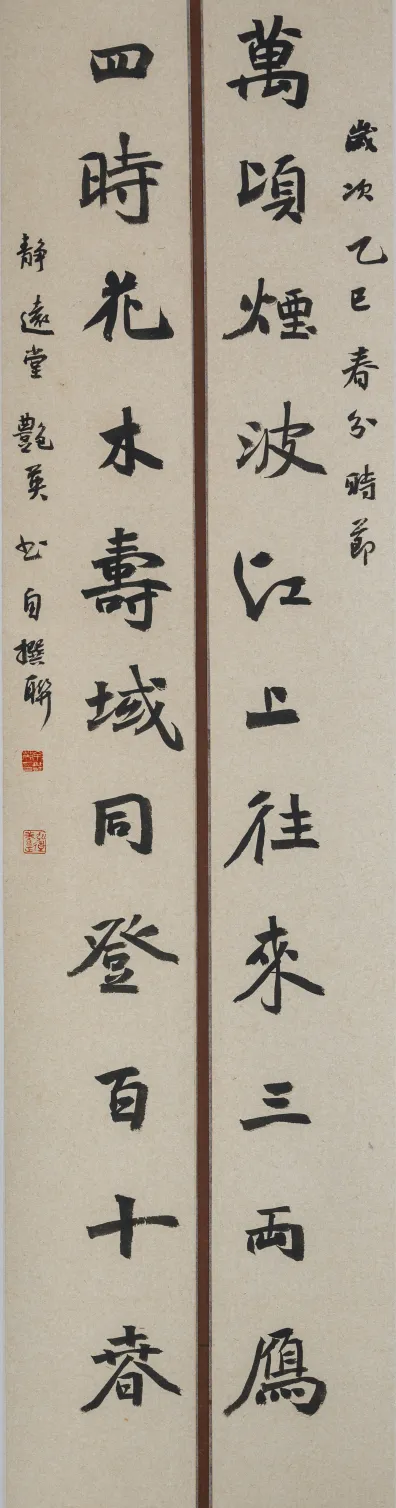 歲次乙巳春分時節
萬頃煙波江上往來三両鴈
四時花木壽域同登百十春
靜遠堂艷英書自撰聯